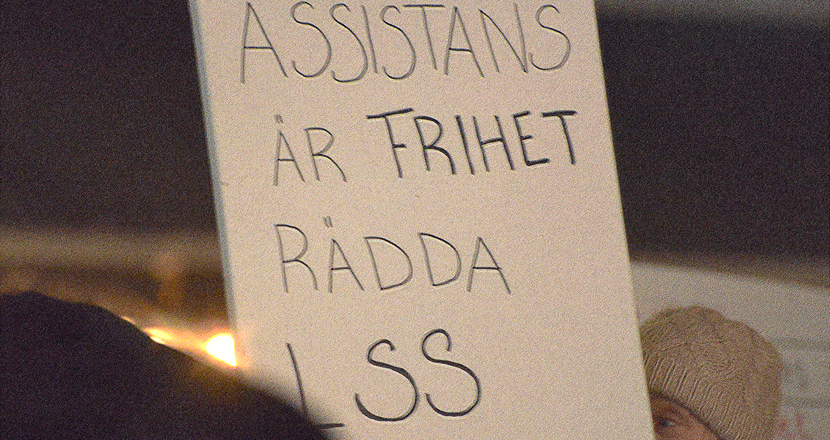 ASSISTANS
ÄR FRIHET
RÄDDA
LSS